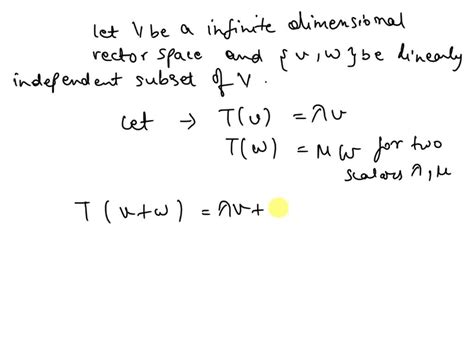 let V be a infinite dimensional
vector space and {v, w} be linearly
independent subset of V.
let → T(v) = λv
T(w) = μw for two
scalars λ, μ
T(v+w) = λv+